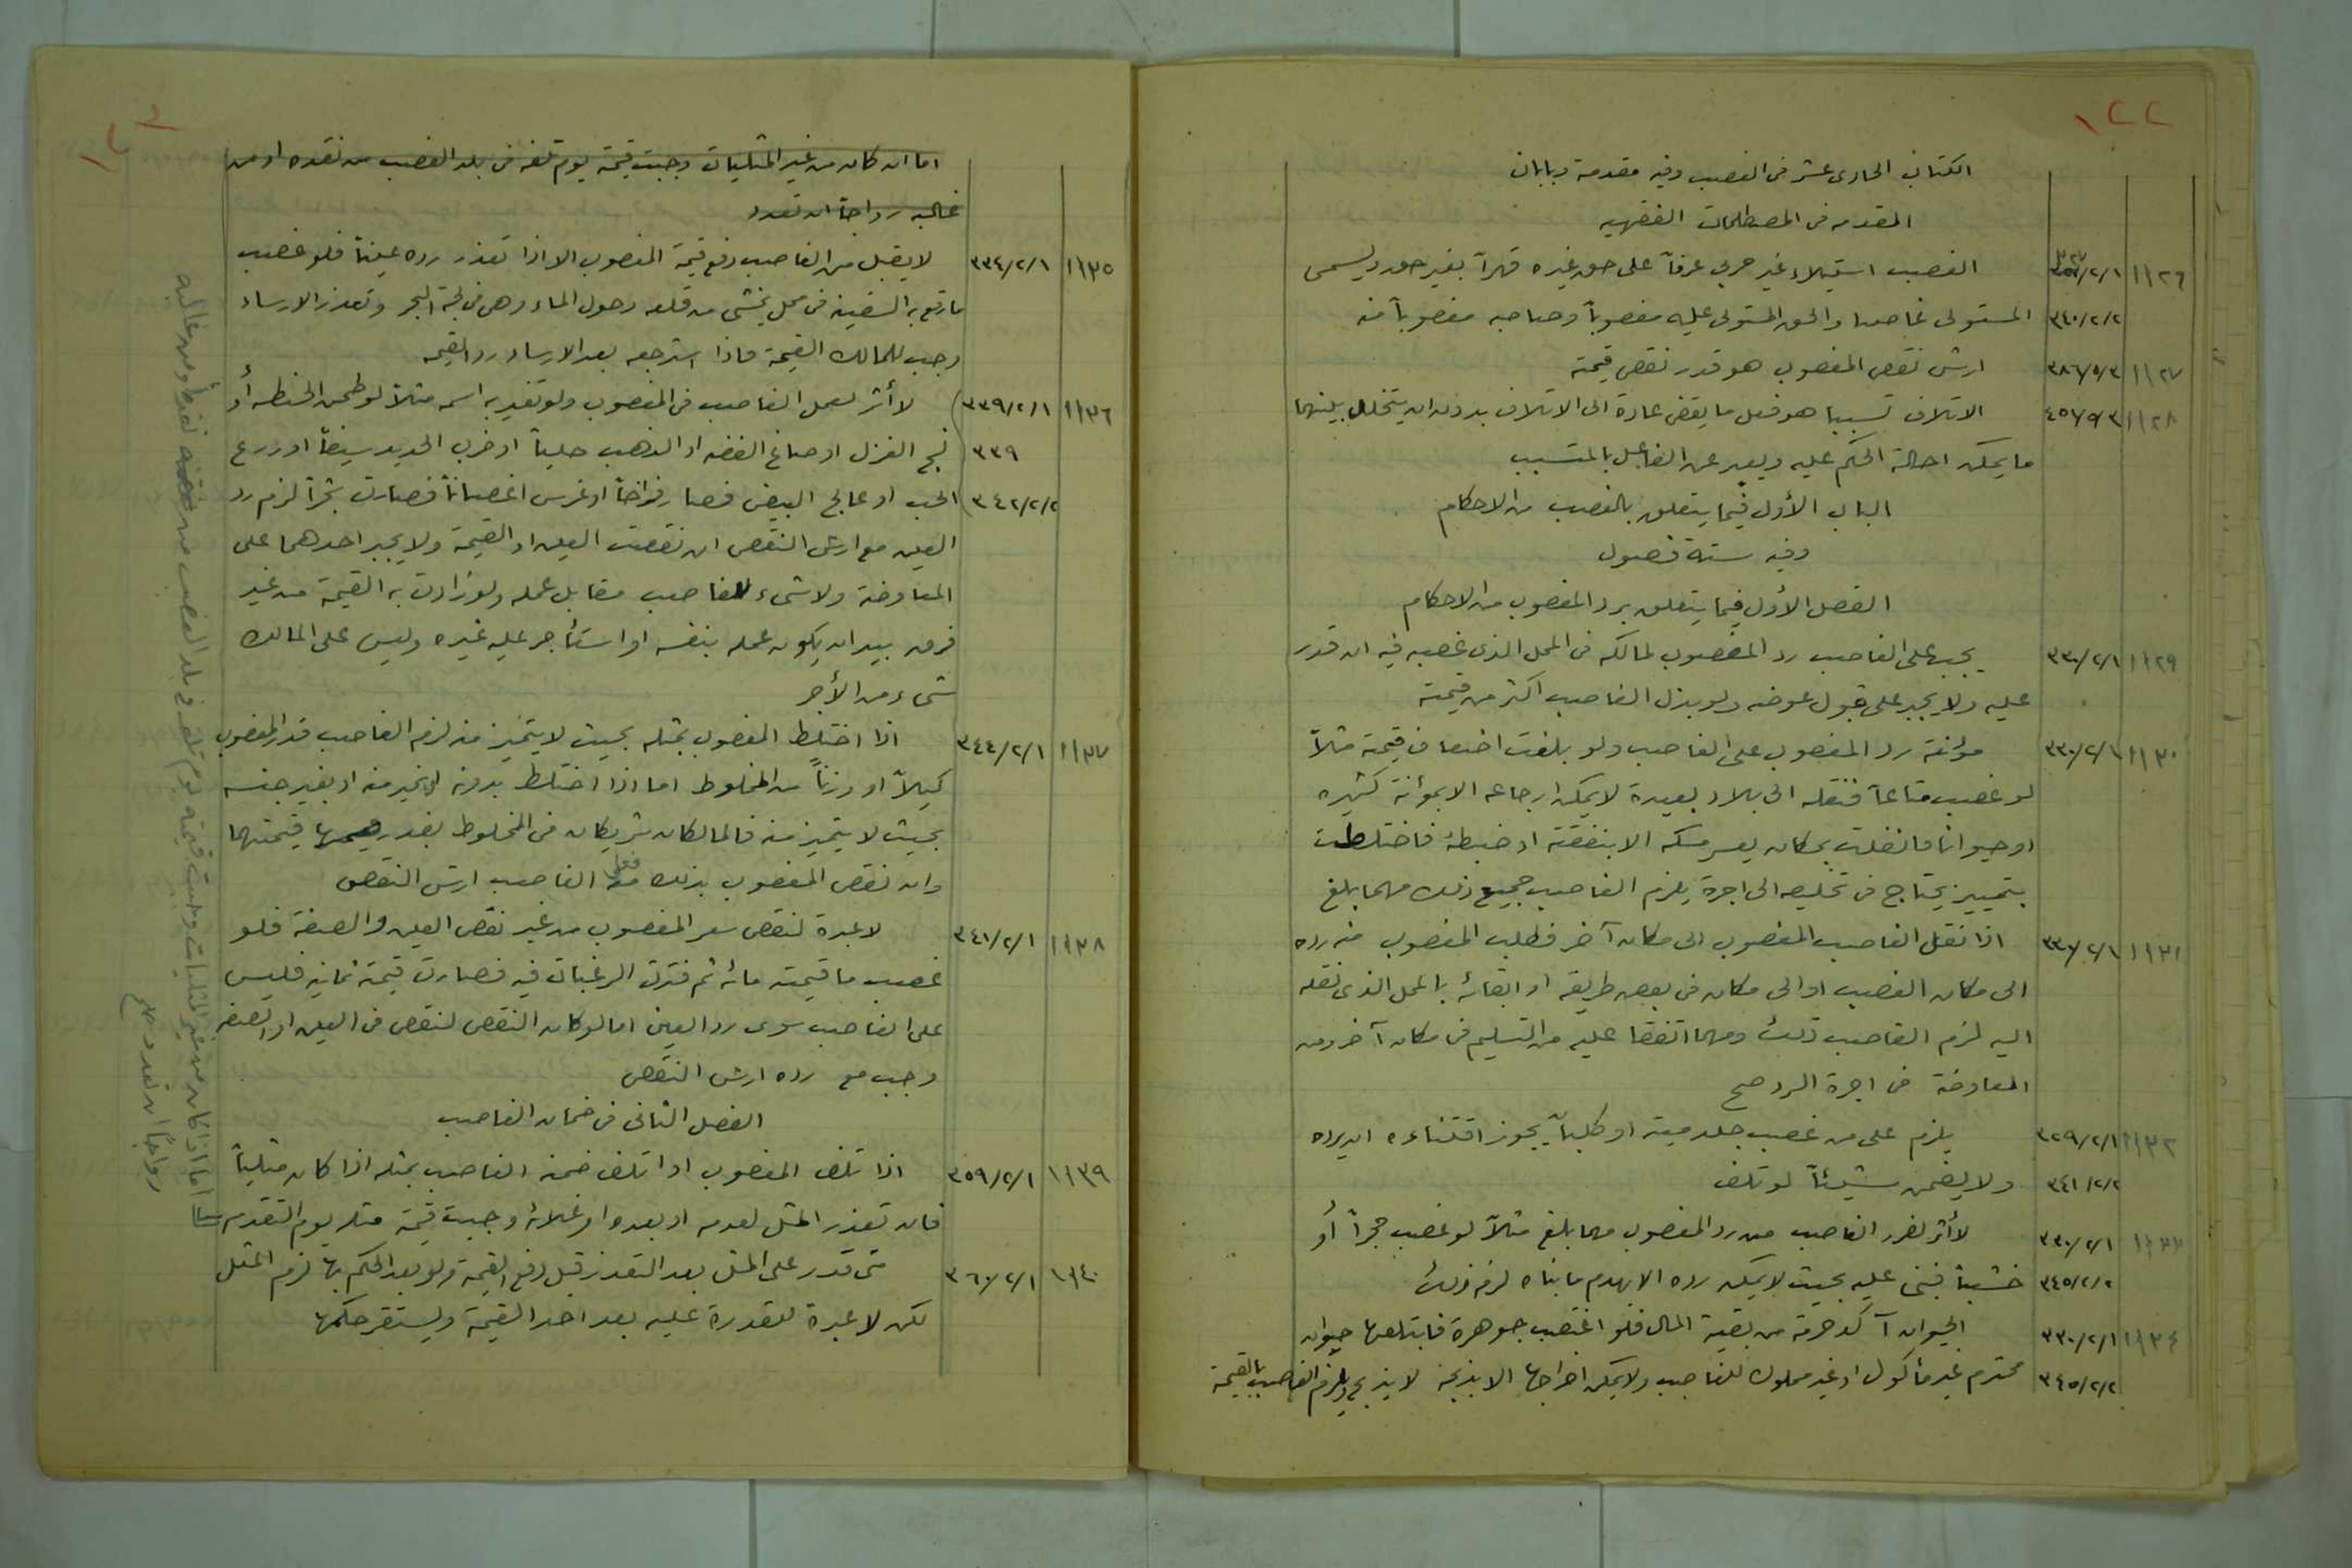 ١٢٢
الكتاب الحادى عشر فى الغصب وفيه مقدمة وبابان
المقدمه فى المصطلحات الفقهيه
١١٢٦ الغصب استيلاء غير حربي عرفاً على حق غيره قهراً بغير حق ويسمى
٣٤٠/٢/٢ المستولى غاصبا والحق المستولى عليه مغصوباً وصاحبه مغصوباً منه
١١٢٧ ٣٨٦/٥/٣ ارش نقص المغصوب هو قدر نقص قيمته
١١٢٨ ٤٥٦/٩/٣ الاتلاف تسببا هو فعل ما يفضى عادة الى الاتلاف بدون ان يتخلل بينهما
ما يمكن احالة الحكم عليه ويعبر عن الفاعل بالمتسبب
الباب الأول فيما يتعلق بالغصب من الاحكام
وفيه ستة فصول
الفصل الأول فيما يتعلق برد المغصوب من الاحكام
١١٢٩ ٣٣٠/٢/١ يجب على الغاصب رد المغصوب لمالكه فى المحل الذى غصبه فيه ان قدر
عليه ولا يجبر على قبول عوضه ولو بذل الغاصب اكثر من قيمته
١١٣٠ ٣٣٠/٢/١ مؤنة رد المغصوب على الغاصب ولو بلغت اضعاف قيمته مثلاً
لو غصب متاعاً فنقله الى بلاد بعيدة لا يمكن ارجاعه الا بمؤنة كثيره
او حيوانا فانفلت بمكان يعسر مسكه الا بنفقة او خبطة فاختلطت
بتمييز يحتاج فى تخليصه الى اجرة يلزم الغاصب جميع ذلك مهما بلغ
١١٣١ ٣٣٧/٢/١ اذا نقل الغاصب المغصوب الى مكان آخر فطلب المغصوب منه رده
الى مكان الغصب او الى مكان فى بعض طريقه او ابقائه بالمحل الذى نقله
اليه لزم الغاصب ذلك ومهما اتفقا عليه من التسليم فى مكان آخر ومن
المعاوضة فى اجرة الرد صح
١١٣٢ ٣٢٩/٢/١ يلزم على من غصب جلد ميتة او كلباً يجوز اقتناءه ان يرده
٣٤١/٢/٢ ولا يضمن شيئاً لو تلف
١١٣٣ ٣٣٠/٢/١ لا أثر لضرر الغاصب من رد المغصوب مهما بلغ مثلاً لو غصب حجراً أو
٣٤٥/٢/٢ خشباً فبنى عليه بحيث لا يمكن رده الا بهدم ما بناه لزم ذلك
١١٣٤ ٣٣٠/٢/١ الحيوان آكد حرمة من بقية المال فلو اغتصب جوهرة فابتلعها حيوان
٣٤٥/٢/٢ محترم غير مأكول او غير مملوك للغاصب ولا يمكن اخراجها الا بذبحه لا يذبح ويلزم الغاصب بالقيمة
اما ان كان من غير المثليات وجبت قيمته يوم تلفه فى بلد الغصب من نقده او من
غالبه رواجاً ان تعدد
١١٣٥ ٣٣٤/٢/١ لا يقبل من الغاصب دفع قيمة المغصوب الا اذا تعذر رده عيناً فلو غصب
ما رقع به السفينة فى محل يخشى من قلعه دخول الماء وهى فى لجة البحر وتعذر الارساء
وجب للمالك القيمة فاذا استرجعه بعد الارساء رد القيمه
١١٣٦ ٣٣٩/٢/١ لا أثر لعمل الغاصب فى المغصوب ولو تغير به اسمه مثلاً لو طحن الحنطه أو
٣٣٩ نسج الغزل او صاغ الفضه او الذهب حلياً او ضرب الحديد سيفاً او زرع
٣٤٢/٢/٢ الحب او عالج البيض فصار فراخاً او غرس اغصاناً فصارت شجراً لزم رد
العين مع ارش النقص ان نقصت العين او القيمة ولا يجبر احدهما على
المعاوضة ولا شىء للغاصب مقابل عمله ولو زادت به القيمة من غير
فرق بين ان يكون عمله بنفسه او استأجر عليه غيره وليس على المالك
شىء من الأجر
١١٣٧ ٣٤٤/٢/١ اذا اختلط المغصوب بمثله بحيث لا يتميز منه لزم الغاصب قدر المغصوب
كيلاً او وزناً من المخلوط اما اذا اختلط بدونه او بخير منه او بغير جنسه
بحيث لا يتميز منه فالمالكان شريكان فى المخلوط بقدر قيمتهما
وان نقص المغصوب بذلك فعلى الغاصب ارش النقص
١١٣٨ ٣٤١/٢/١ لا عبرة لنقص سعر المغصوب من غير نقص العين والصفة فلو
غصب ما قيمته مائه ثم فترت الرغبات فيه فصارت قيمته ثمانيه فليس
على الغاصب سوى رد العين اما لو كان النقص لنقص فى العين او الصفه
وجب مع رده ارش النقص
الفصل الثانى فى ضمان الغاصب
١١٣٩ ٣٥٩/٢/١ اذا تلف المغصوب او اتلف ضمنه الغاصب بمثله اذا كان مثلياً
فان تعذر المثل لعدمه او بعده او غلائه وجبت قيمة مثله يوم التعذر
١١٤٠ ٣٦٠/٢/١ متى قدر على المثل بعد التعذر قبل دفع القيمة ولو بعد الحكم بها لزم المثل
لكن لا عبرة للقدرة عليه بعد اخذ القيمة ويستقر حكمها
اما اذا كان من غير المثليات وجبت قيمته يوم تلفه فى بلد الغصب من نقده او من غالبه
رواجاً ان تعدد صح